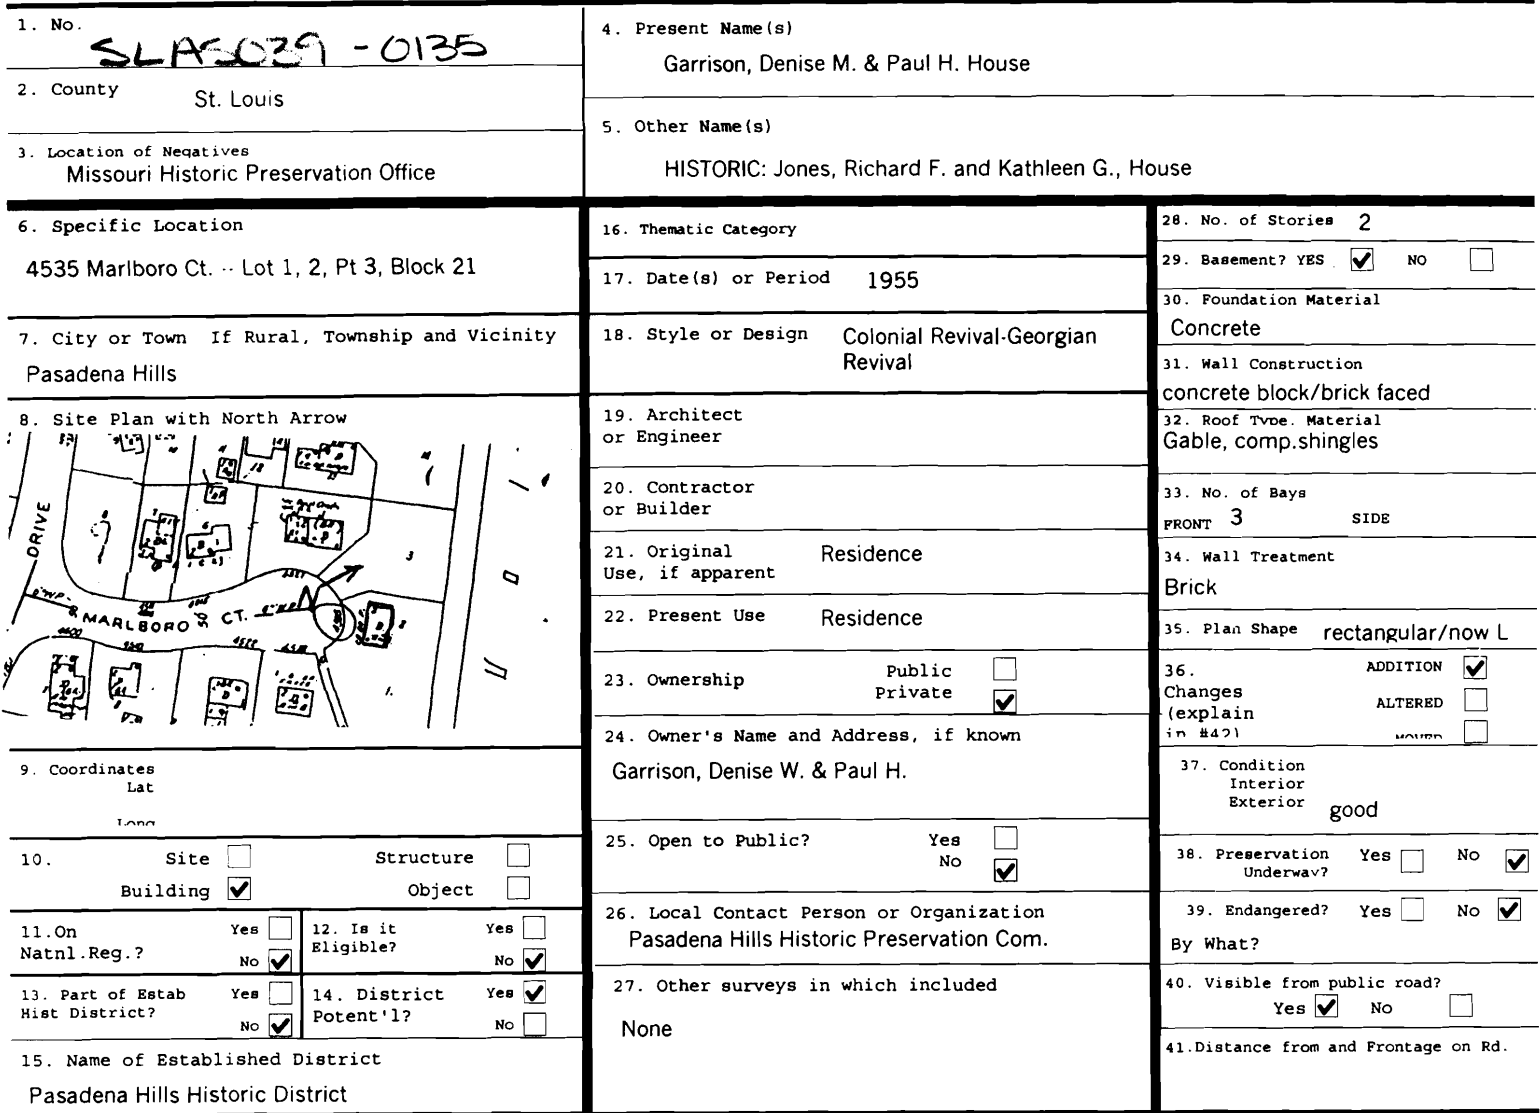 1. No.
SLAS039 - 0135
2. County
St. Louis
3. Location of Negatives
Missouri Historic Preservation Office
4. Present Name(s)
Garrison, Denise M. & Paul H. House
5. Other Name(s)
HISTORIC: Jones, Richard F. and Kathleen G., House
6. Specific Location
4535 Marlboro Ct. -- Lot 1, 2, Pt 3, Block 21
7. City or Town If Rural, Township and Vicinity
Pasadena Hills
8. Site Plan with North Arrow
DRIVE
MARLBORO CT.
50
N
9. Coordinates
Lat
Long
10. Site Structure
Building ✔ Object
11. On Yes
Natnl.Reg.? No ✔
12. Is it Yes
Eligible? No ✔
13. Part of Estab Yes
Hist District? No ✔
14. District Yes ✔
Potent'l? No
15. Name of Established District
Pasadena Hills Historic District
16. Thematic Category
17. Date(s) or Period 1955
18. Style or Design Colonial Revival-Georgian
Revival
19. Architect
or Engineer
20. Contractor
or Builder
21. Original Residence
Use, if apparent
22. Present Use Residence
23. Ownership Public
Private ✔
24. Owner's Name and Address, if known
Garrison, Denise W. & Paul H.
25. Open to Public? Yes
No ✔
26. Local Contact Person or Organization
Pasadena Hills Historic Preservation Com.
27. Other surveys in which included
None
28. No. of Stories 2
29. Basement? YES ✔ NO
30. Foundation Material
Concrete
31. Wall Construction
concrete block/brick faced
32. Roof Type. Material
Gable, comp.shingles
33. No. of Bays
FRONT 3 SIDE
34. Wall Treatment
Brick
35. Plan Shape rectangular/now L
36. ADDITION ✔
Changes ALTERED
(explain
in #42) MOVED
37. Condition
Interior
Exterior good
38. Preservation Yes No ✔
Underway?
39. Endangered? Yes No ✔
By What?
40. Visible from public road?
Yes ✔ No
41.Distance from and Frontage on Rd.